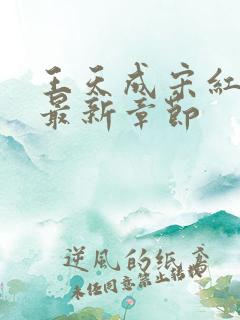 王天成宋红
最新章节
逆风的纸鸢
未经同意禁止转载